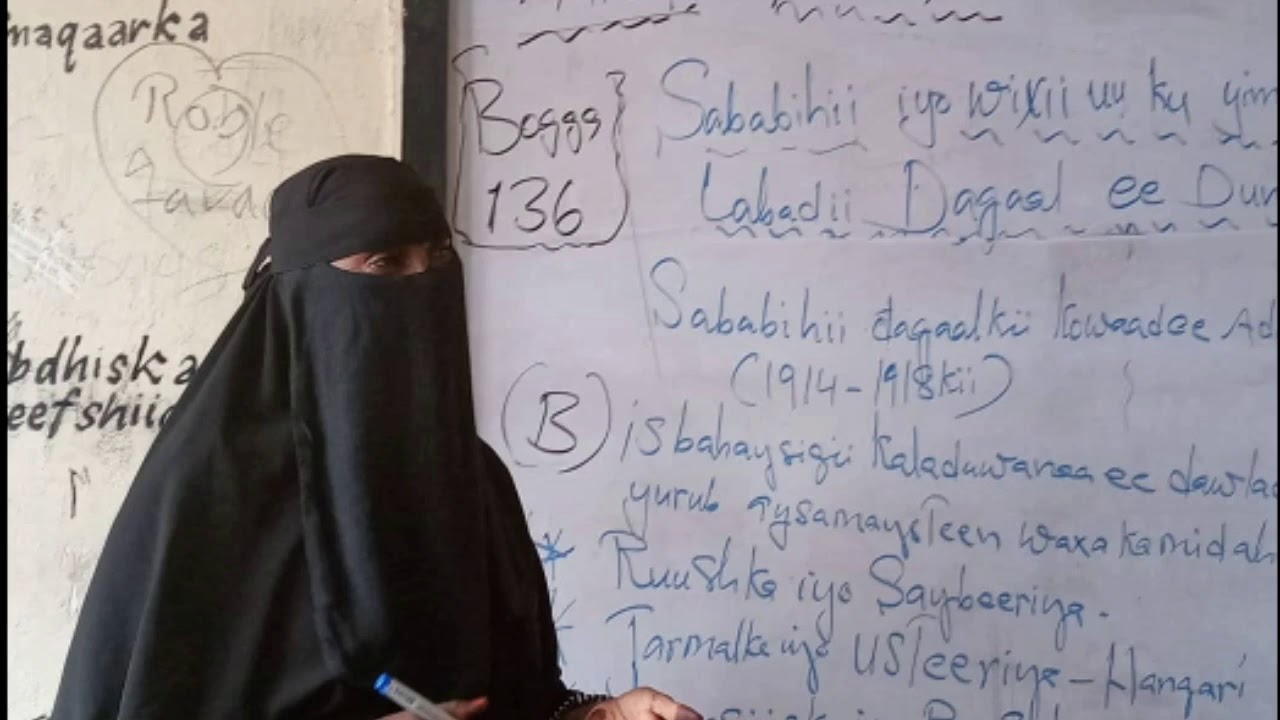 maqaarka
Roble
Bogga
136
Sababihii iyo wixii uu ku yim
Labadii Dagaal ee Dun
Sababihii dagaalkii kowaadee Ad
(1914-1918kii)
(B) isbahaysigii kaladuwanaa ee dawla
yurub aysamaysteen waxa kamid ah
* Ruushka iyo Saybeeriya.
* Jarmalka iyo USTeeriya - Hangari
bdhiska
eefshii